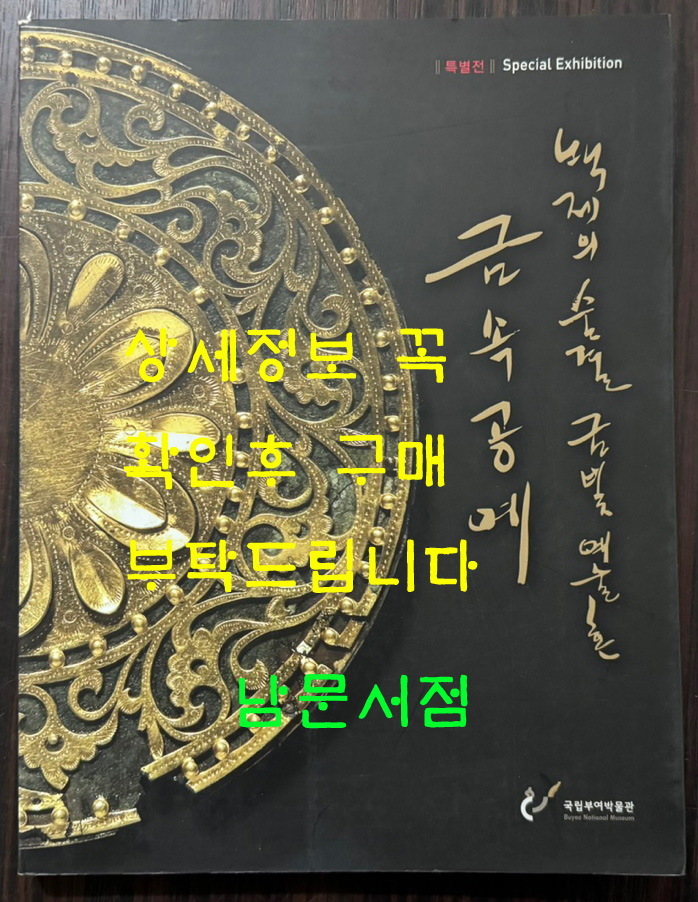 || 특별전 || Special Exhibition
백제의 숨결 금빛 예술혼
금속공예
상세정보 꼭
확인후 구매
부탁드립니다
남문서점
국립부여박물관
Buyeo National Museum